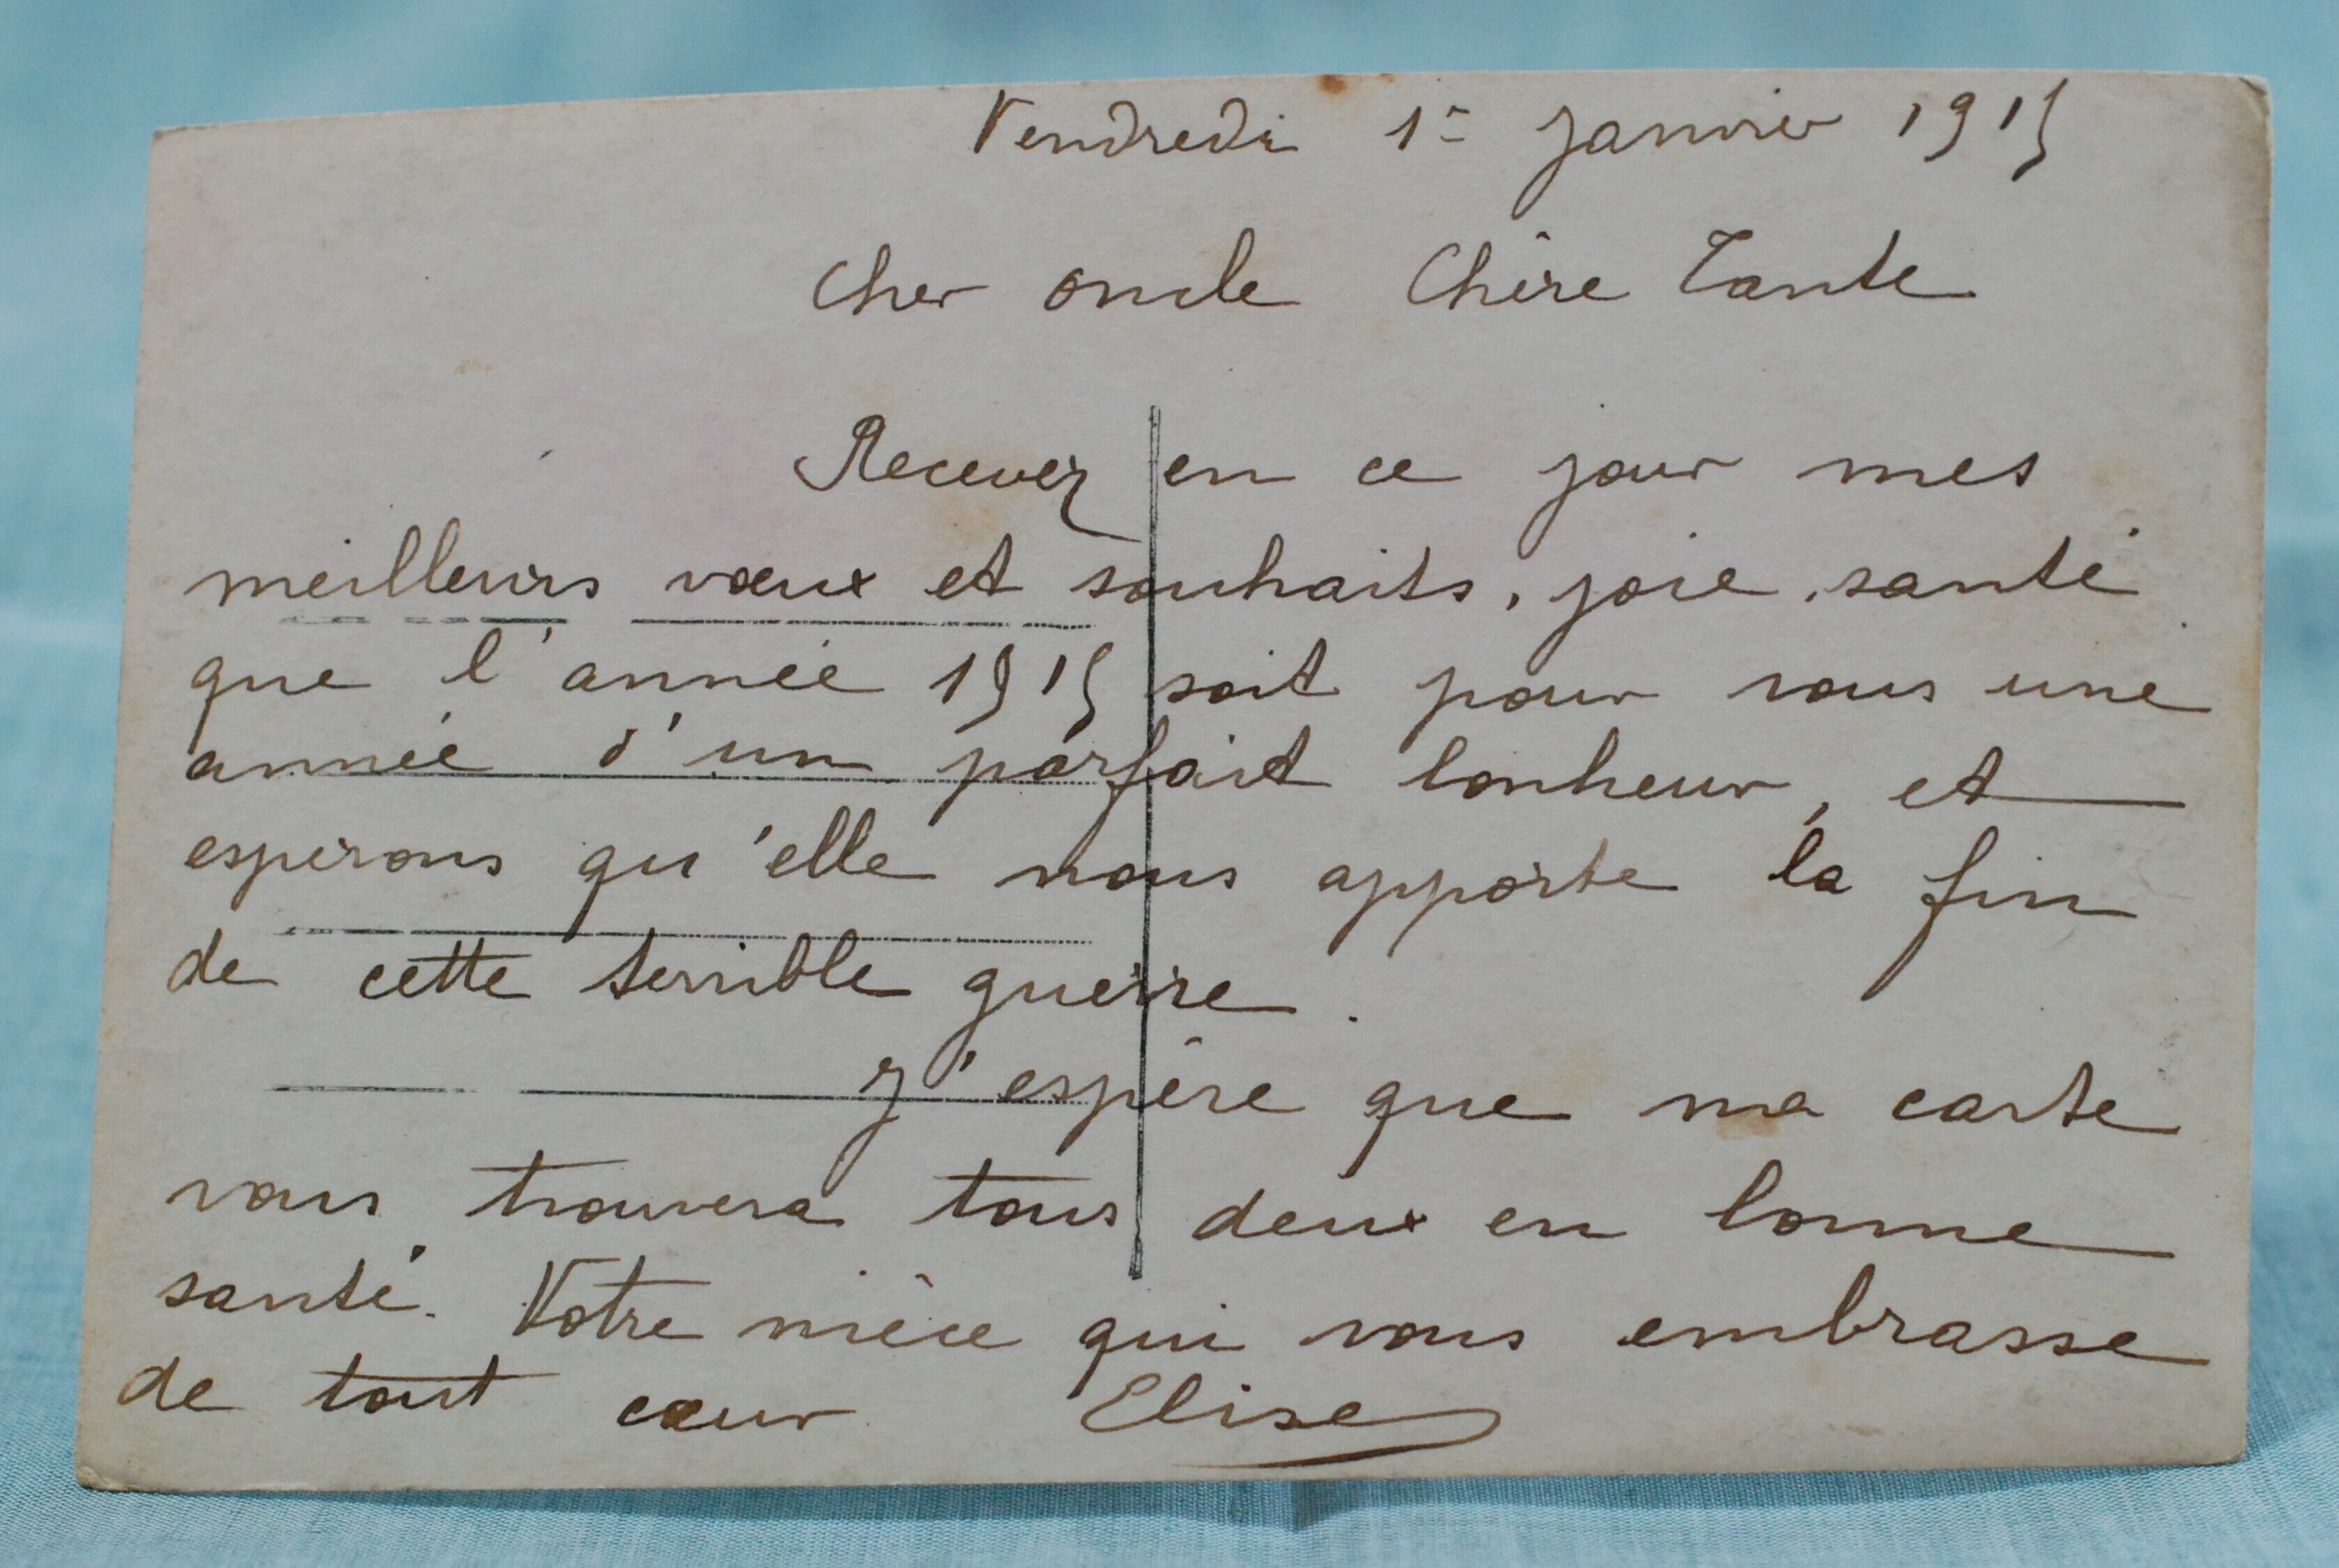 Vendredi 1er Janvier 1915
Cher oncle Chère Tante
Recevez en ce jour mes
meilleurs vœux et souhaits, joie, santé
que l'année 1915 soit pour vous une
année d'un parfait bonheur, et
esperons qu'elle nous apporte la fin
de cette terrible guerre.
J'espère que ma carte
vous trouvera tous deux en bonne
santé. Votre nièce qui vous embrasse
de tout cœur Elise